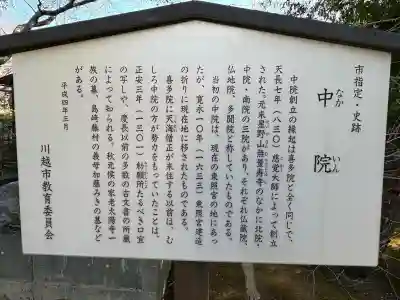 市指定・史跡
中院
なか いん
中院創立の縁起は喜多院と全く同じで、
天長七年(八三〇)慈覚大師によって創立
された。元来星野山無量寿寺のなかに北院・
中院・南院の三院があり、それぞれ仏蔵院、
仏地院、多聞院と称していたものである。
当初の中院は、現在の東照宮の地にあっ
たが、寛永一〇年(一六三三)東照宮建造
の折りに現在地に移されたものである。
喜多院に天海僧正が来住する以前は、む
しろ中院の方が勢力をもっていたことは、
正安三年(一三〇一)勅願所たるべき口宣
の写しや、慶長以前の多数の古文書の所蔵
によって知られる。秋元候の家老太陽寺一
族の墓、島崎藤村の義母加藤みきの墓など
がある。
平成四年三月
川越市教育委員会